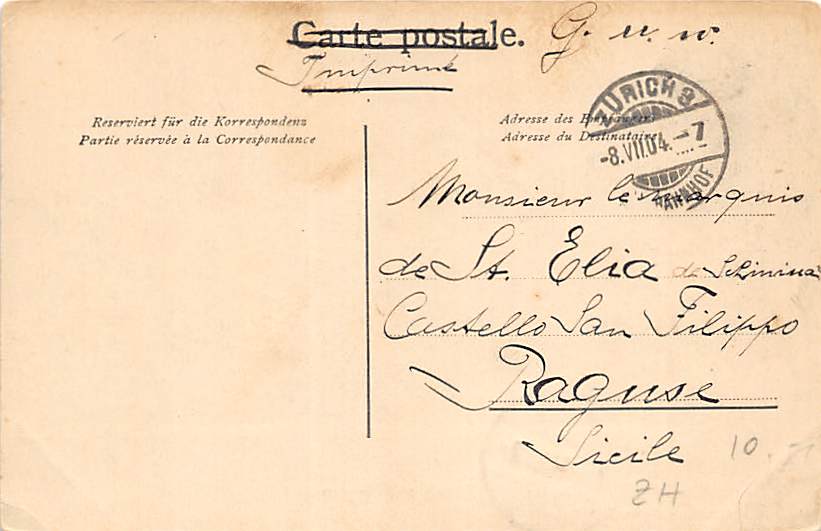 Carte postale. G. u. w.
Imprimé
Reserviert für die Korrespondenz
Partie réservée à la Correspondance
Adresse des Empfängers
Adresse du Destinataire
ZÜRICH 3
-8.VII.04.-7
BAHNHOF
Monsieur le marquis
de St. Elia de
Castello San Filippo
Raguse
Sicile
10.-
ZH